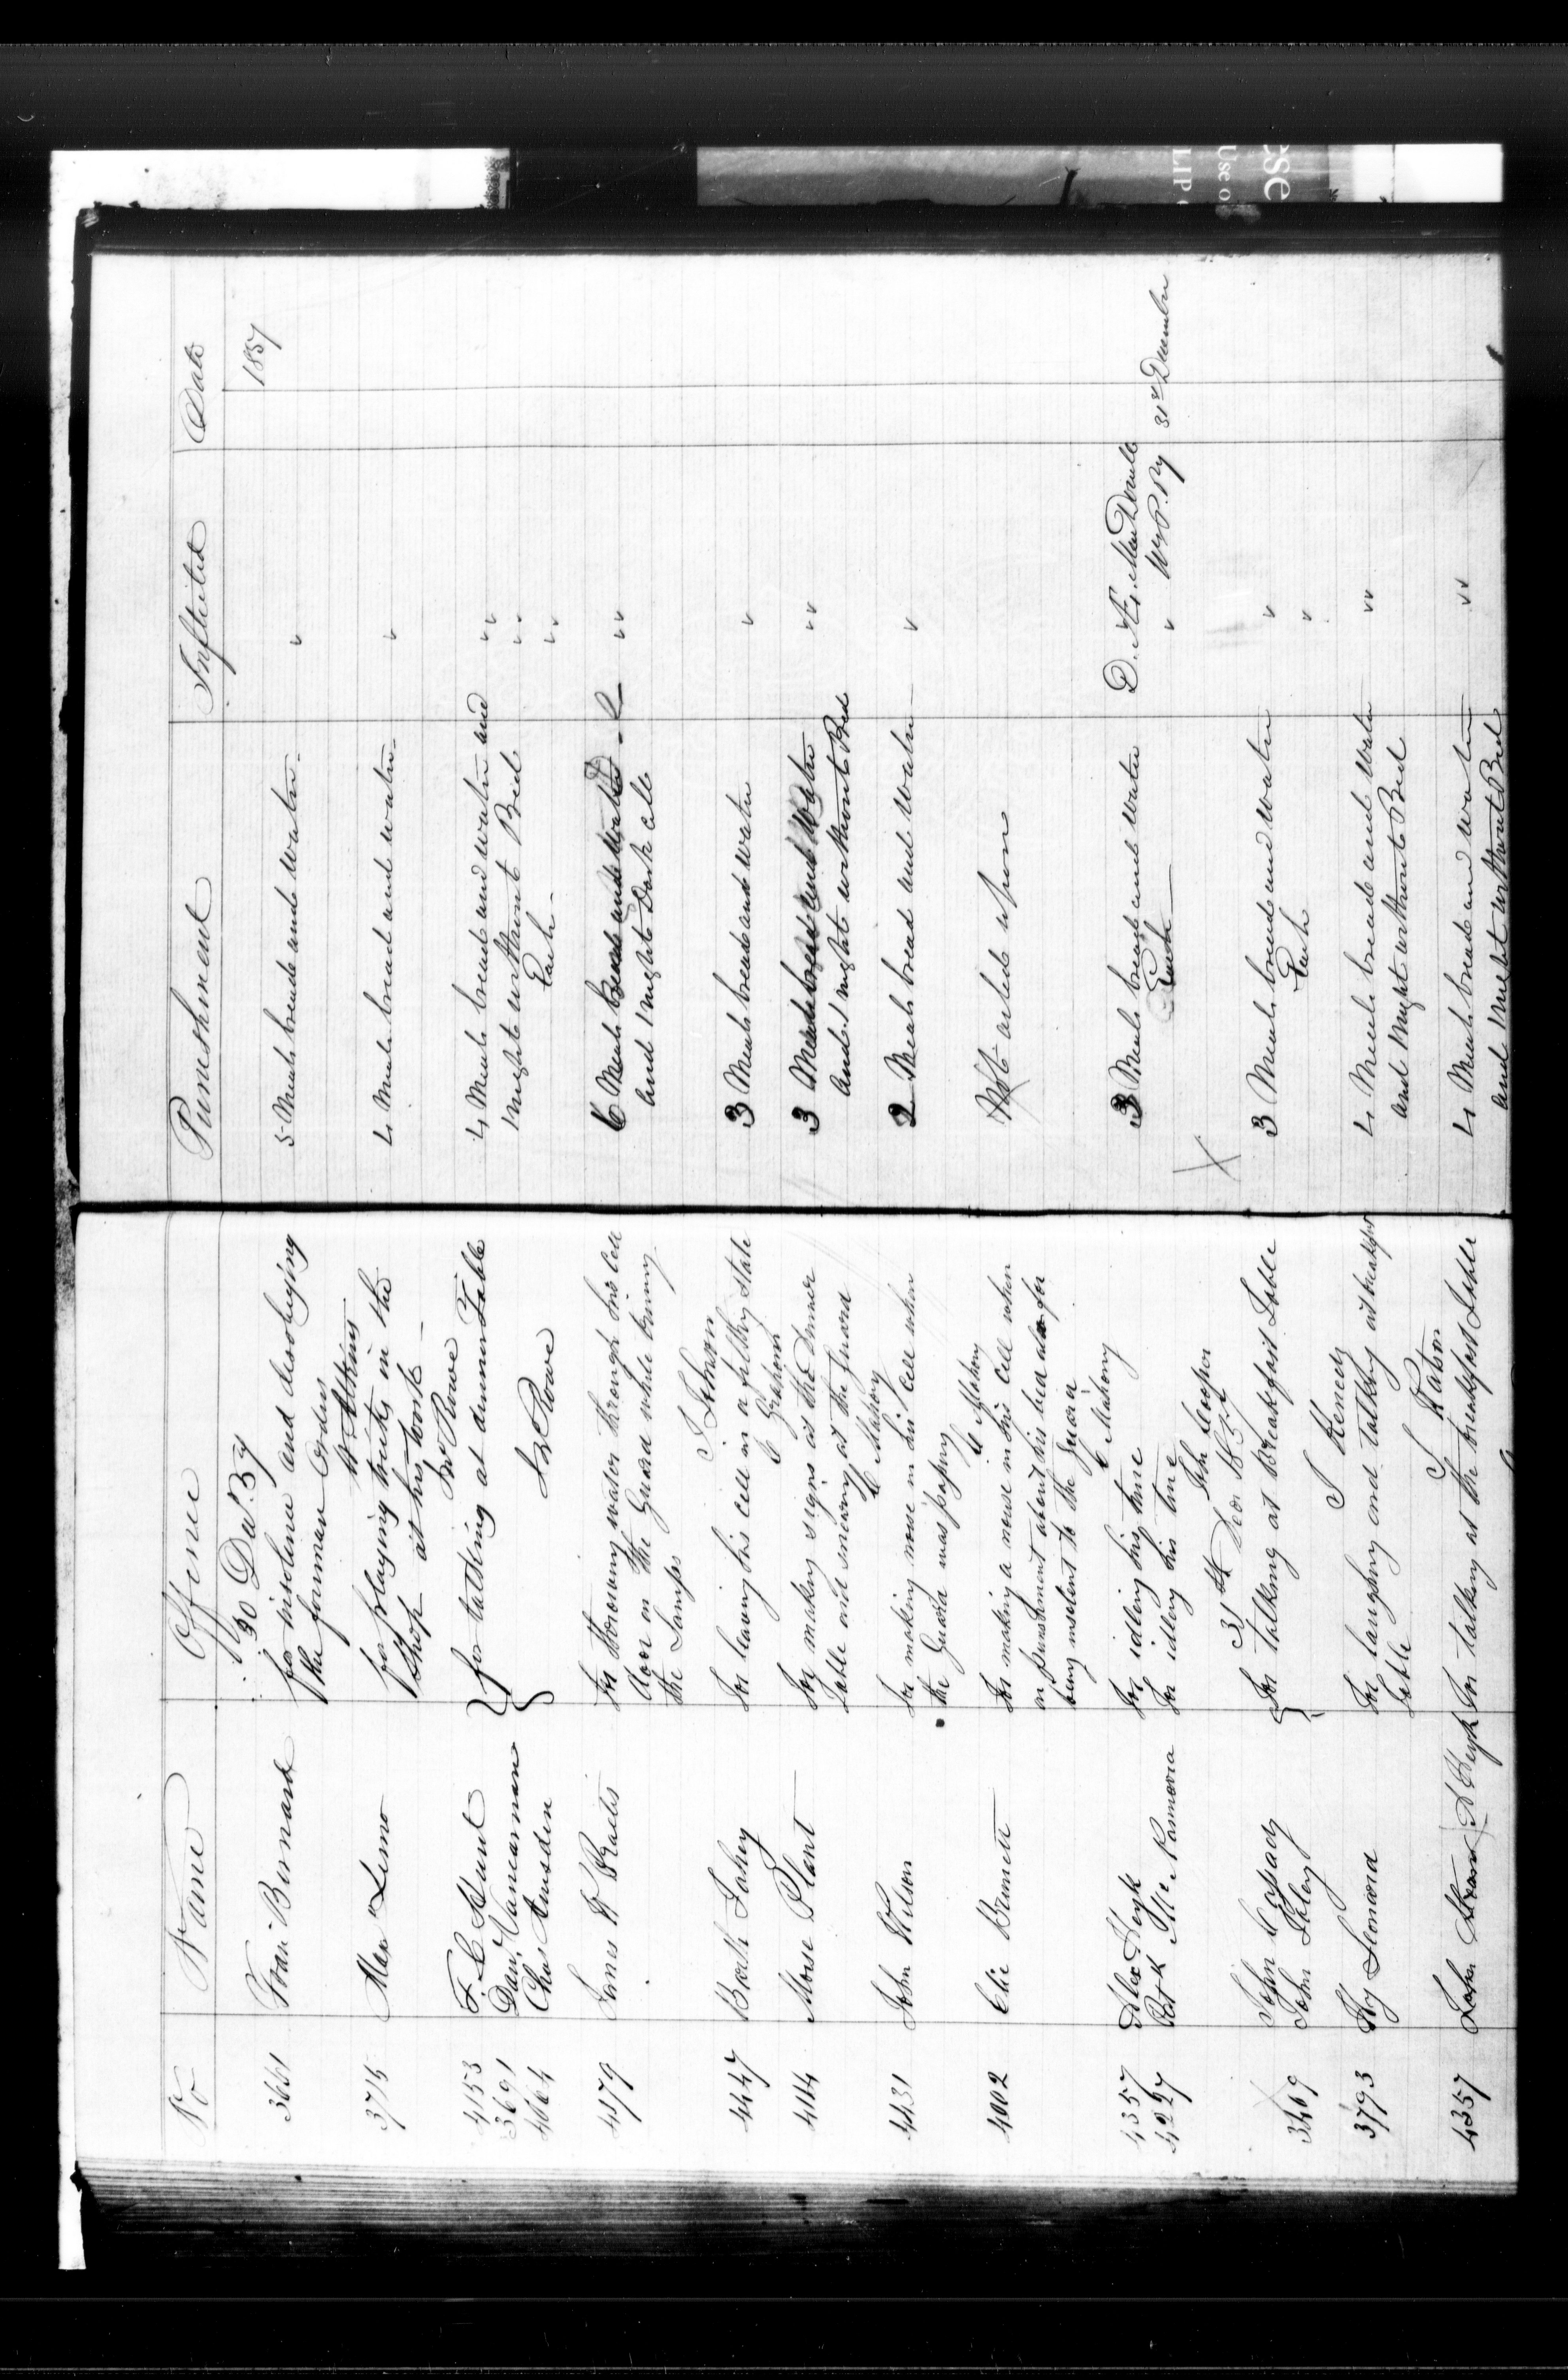 No Name Offence Punishment Inflicted Date
30 Dec. 57 1857
3661 Fran Burnard for insolence and disobeying 5 Meals bread and water "
the foreman Orders
W Atkins
3715 Alex Leno for playing tricks in the 4 Meals bread and water "
Shop at his work
Jno Rowe
4153 F. C. Hunt for talking at dinner Table 4 Meals bread and water and " "
3691 Dan Vancarnan 1 night without Bed " "
4064 Chas Amsden Jno Rowe Each " "
4379 James W for throwing water through his Cell 6 Meals Bread and Water " "
door on the Guard while trimming and 1 night Dark Cell
the Lamps
J. Johnson
4447 Barth Fahey For leaving his Cell in a filthy state 3 Meals bread and water "
C Graham
4114 Morse Plant For making signs at the dinner 3 Meals bread and Water " "
Table and sneering at the Guard and 1 night without Bed
C Mahony
4431 John Wilson For making noise in his Cell when 2 Meals bread and Water "
the Guard was passing
C Mahony
4002 Elie Brunett For making a noise in his Cell when Not acted upon
on punishment about his bed also for
being insolent to the Guard
C Mahony
4357 Alex Heyk For idling his time 3 Meals bread and water D. Æ. MacDonell
4227 Patk McNamara For idling his time Each " W.P.Py 31st December
John Cooper
31st Dec 1857
John Cassady For talking at Breakfast Table 3 Meals bread and water "
3469 John Fahey Each "
J Kenedy
3793 Hy Leonard For laughing and talking at breakfast 4 Meals bread and Water " "
table and 1 Night without Bed
J Watson
4357 John A Heyk For talking at the breakfast table 4 Meals bread and water " "
and 1 Night without Bed